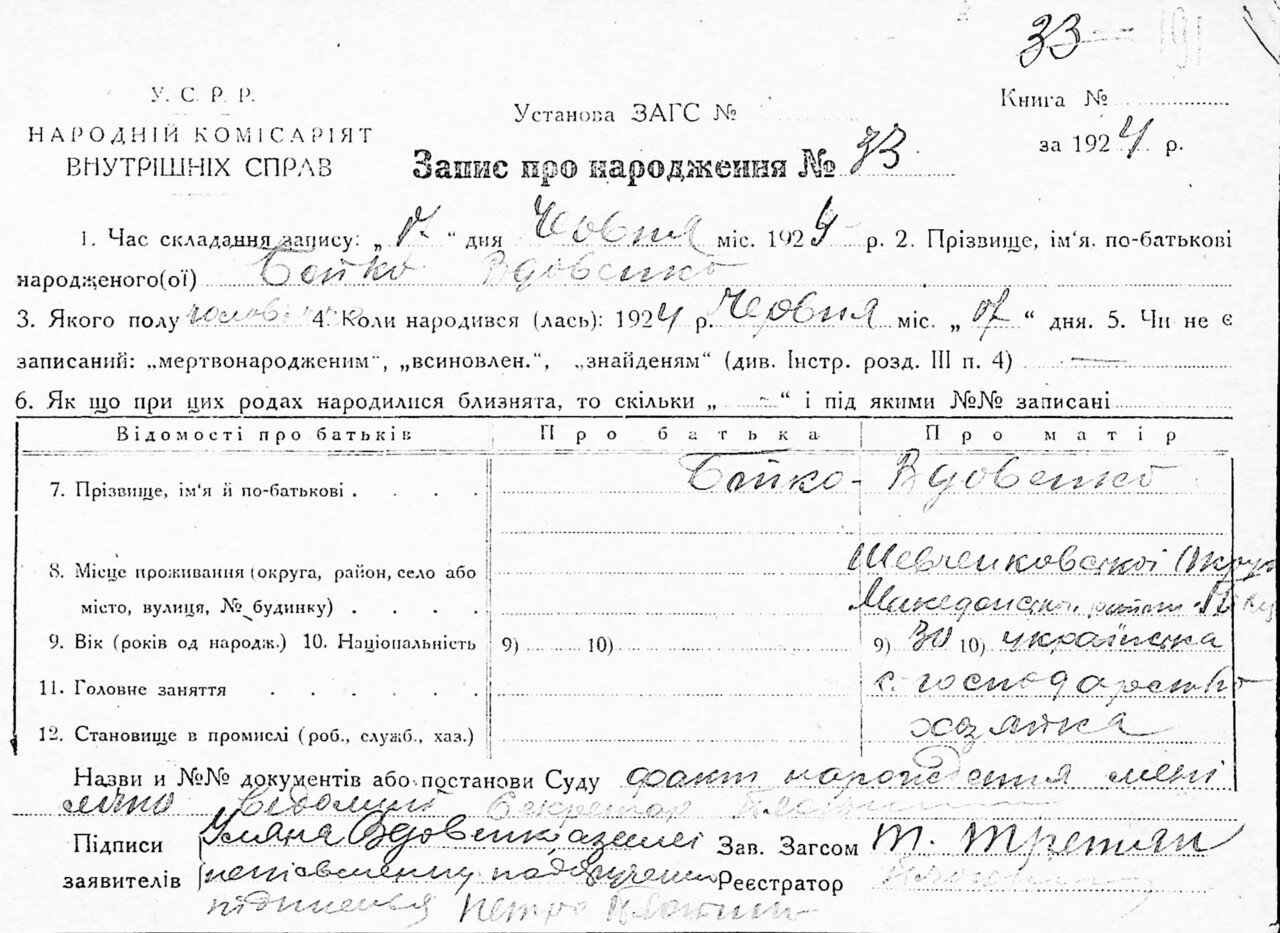 33
У. С. Р. Р.
НАРОДНІЙ КОМІСАРІЯТ
ВНУТРІШНІХ СПРАВ
Установа ЗАГС №
Книга №
за 1924 р.
Запис про народження № 33
1. Час складання запису: „ " дня Червня міс. 1924 р. 2. Прізвище, ім'я. по-батькові
народженого(ої) Бойко Вдовенко
3. Якого полу 4. Коли народився (лась): 1924 р. Червня міс. „ " дня. 5. Чи не є
записаний: „мертвонародженим", „всиновлен.", „знайденям" (див. Інстр. розд. III п. 4) —
6. Як що при цих родах народилися близнята, то скільки „ - " і під якими №№ записані
Відомості про батьків Про батька Про матір
7. Прізвище, ім'я й по-батькові . . . . Бойко- Вдовенко
8. Місце проживання (округа, район, село або Шевченковської
місто, вулиця, № будинку) . . . .
9. Вік (років од народж.) 10. Національність 9) 10) 9) 30 10) українка
11. Головне заняття . . . . . с. господарство
12. Становище в промислі (роб., служб., хаз.) хазяйка
Назви и №№ документів або постанови Суду факт народження мені
Секретар
Підписи Уляна Вдовенко Зав. Загсом Т. Третяк
заявителів Реєстратор
Петро